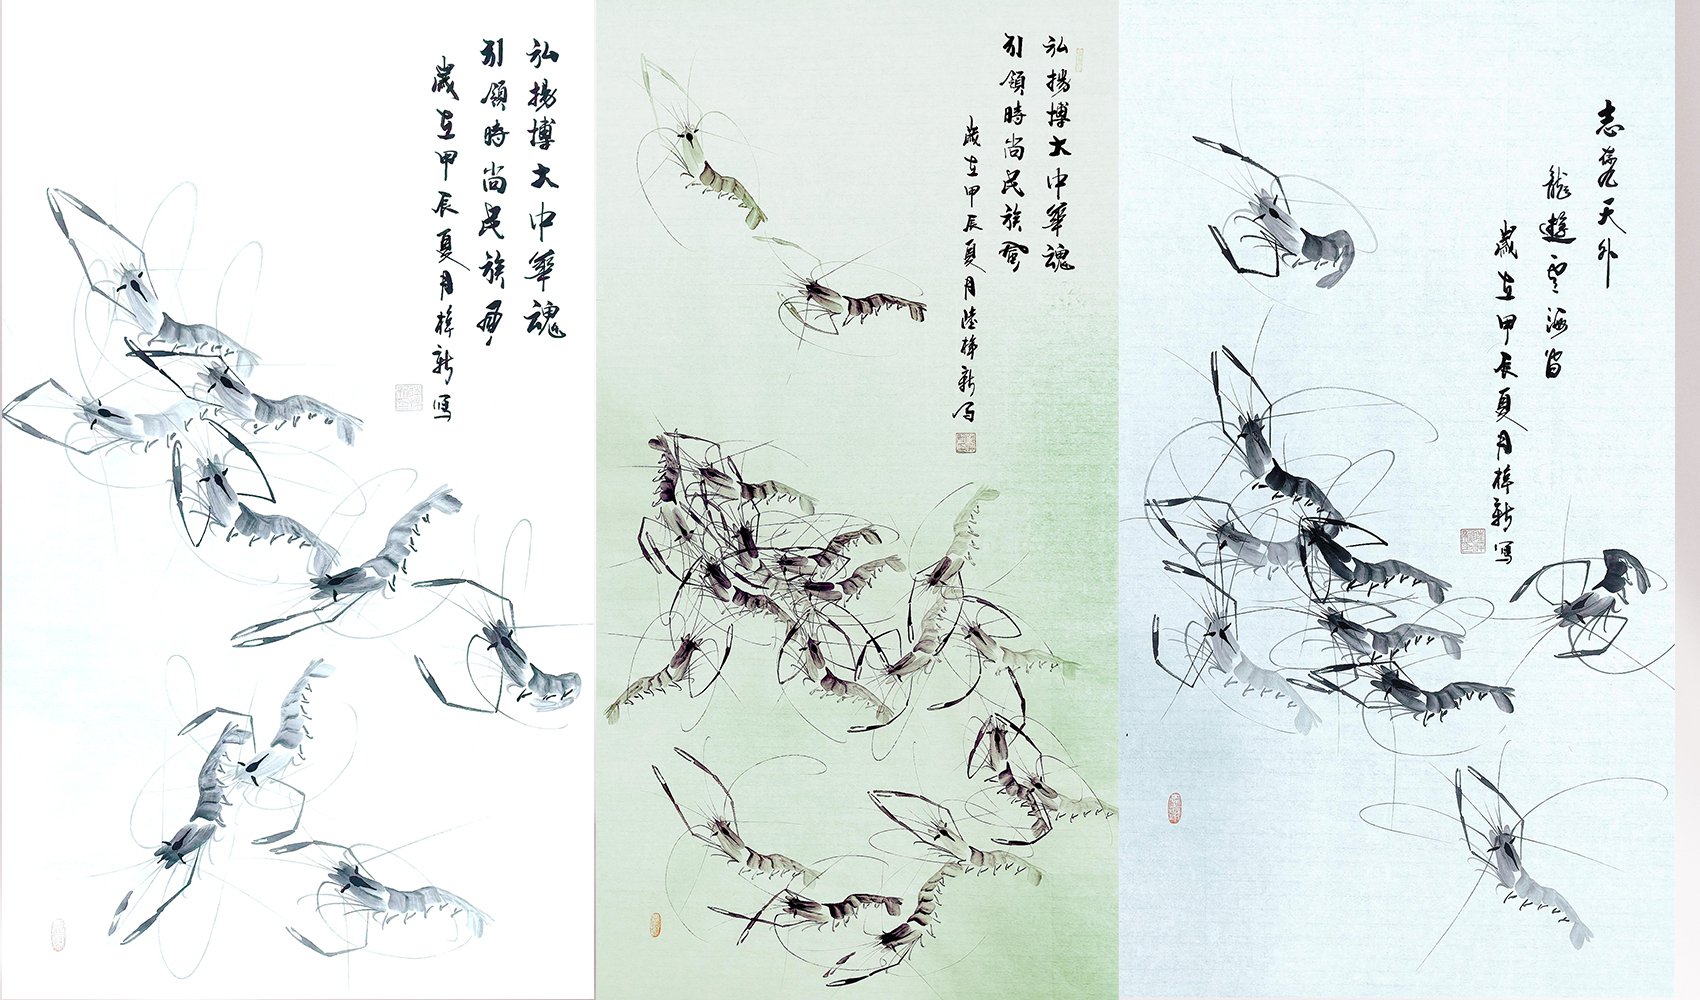 弘揚博大中華魂
引領時尚民族風
歲在甲辰夏月梓新寫
弘揚博大中華魂
引領時尚民族風
歲在甲辰夏月陸梓新寫
志存天外
龍遊雲海間
歲在甲辰夏月梓新寫